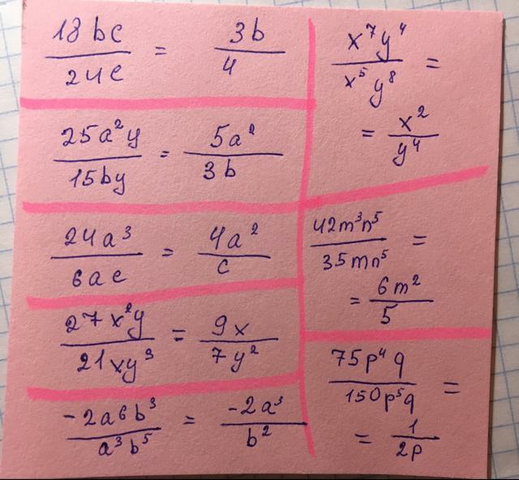 18bc/24c = 3b/4
25a²y/15by = 5a²/3b
24a³/6ac = 4a²/c
27x²y/21xy³ = 9x/7y²
-2a6b³/a³b⁵ = -2a³/b²
x⁷y⁴/x⁵y⁸ =
= x²/y⁴
42m³n⁵/35mn⁵ =
= 6m²/5
75p⁴q/150p⁵q =
= 1/2p